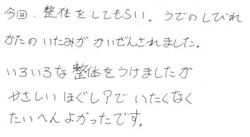 今回、整体をしてもらい。うでのしびれ
かたの いたみが かいぜんされました。
いろいろな 整体をうけましたが
やさしい ほぐし？で いたくなく
たいへん よかったです。